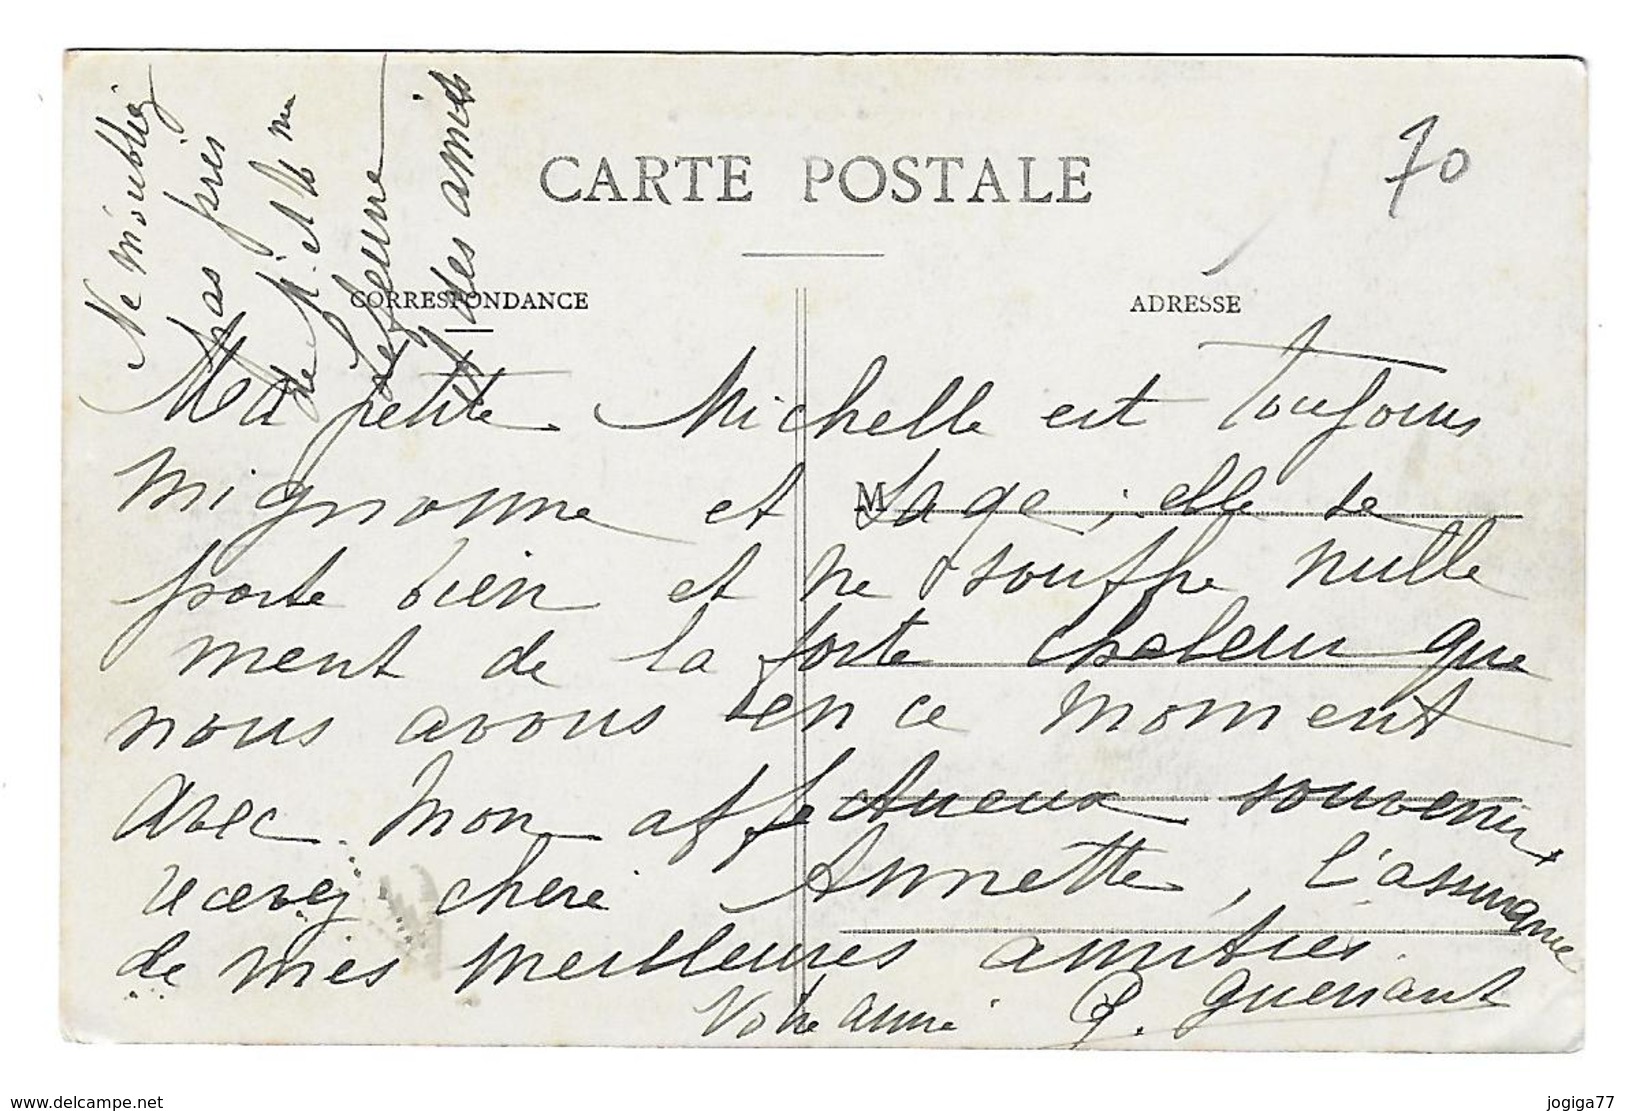 CARTE POSTALE
70
CORRESPONDANCE
ADRESSE
M
Ne m'oubliez
pas près
de M. et Mme
Lefeuvre
des amies
Ma petite Michelle est toujours
mignonne et sage ; elle se
porte bien et ne souffre nulle
ment de la forte chaleur que
nous avons en ce moment
Avec mon affectueux souvenir
recevez chère Annette, l'assurance
de mes meilleures amitiés.
Votre amie G.
delcampe.net
jogiga77